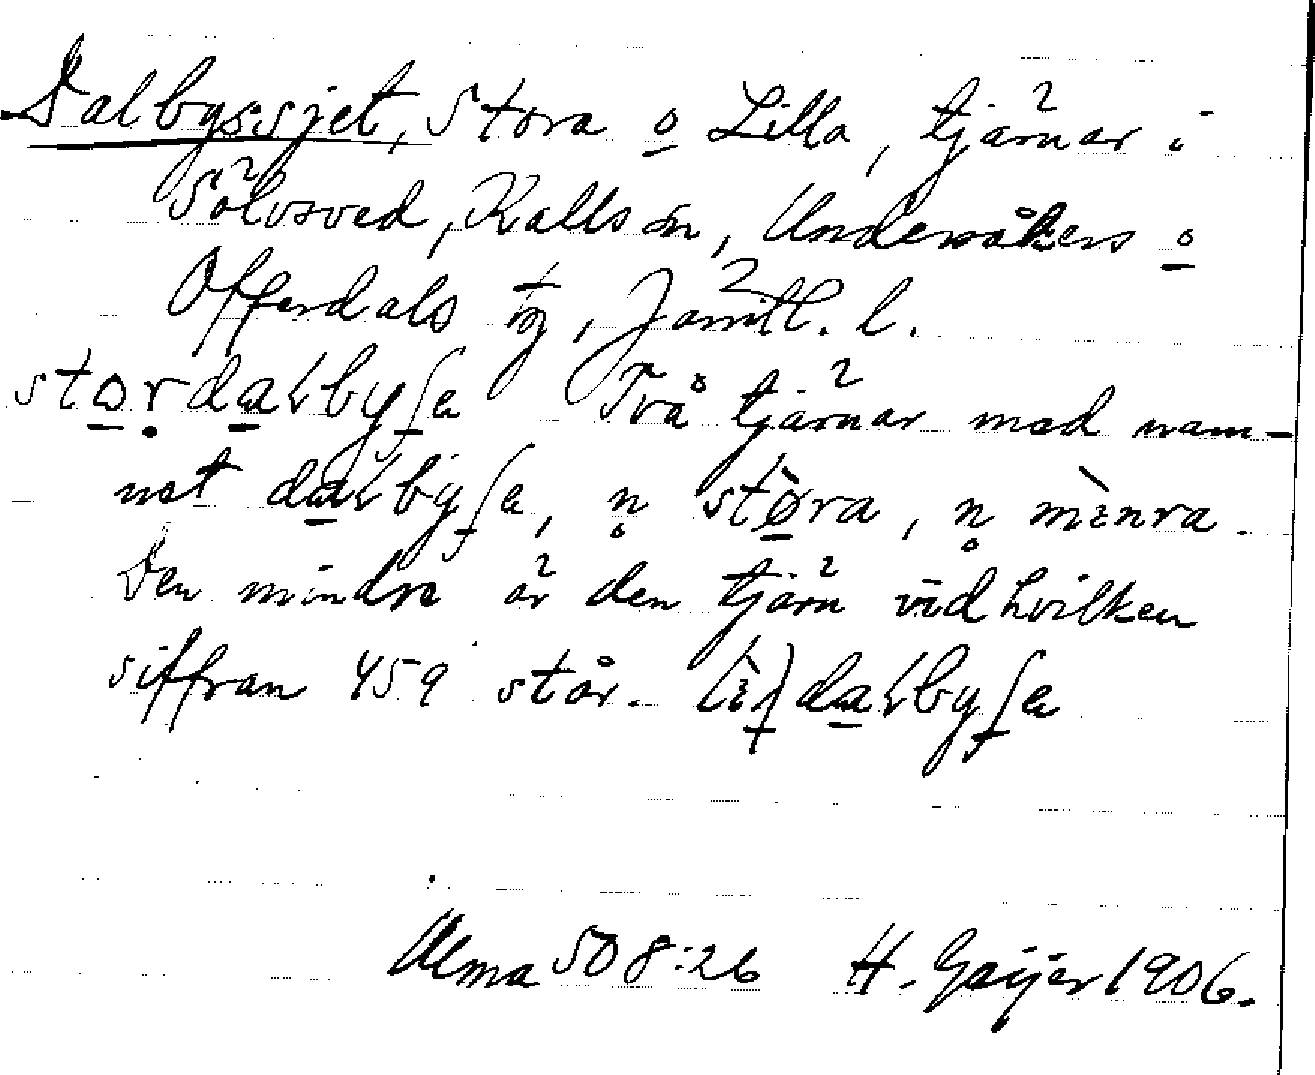 Dalbyssjet, Stora o Lilla, tjärnar i
Sölvsved, Kalls sn, Undersåkers o
Offerdals tg, Jämtl. l.
stordalbyʃe Två tjärnar med nam-
net dalbyʃe, n̥ stø̀ra, n̥ mìnra.
Den mindre är den tjärn vid hvilken
siffran 459 står. dalbyʃe
Ulma 508:26 H. Geijer 1906.